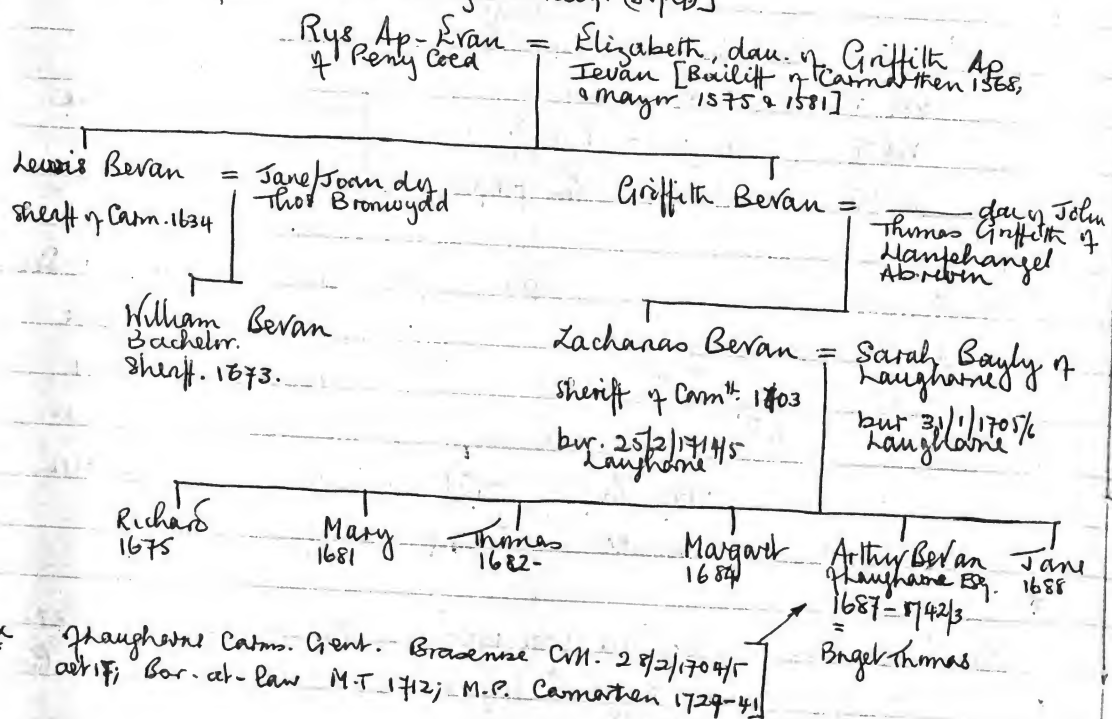 Rys Ap-Evan = Elizabeth, dau. of Griffith Ap
of Peny Coed
Ievan [Bailiff of Carmarthen 1568,
& mayor 1575 & 1581]
Lewis Bevan = Jane/Joan dy
Thos Bronwydd
sheriff of Carm. 1634
Griffith Bevan = ——— dau of John
Thomas Griffith of
Llanfihangel
William Bevan
Bachelor.
Sheriff. 1673.
Zacharias Bevan = Sarah Bayly of
Laugharne
sheriff of Carmth. 1703
bur. 25/2/1714/5
Laugharne
bur 31/1/1705/6
Laugharne
Richard
1675
Mary
1681
Thomas
1682-
Margaret
1684
Arthur Bevan
of Laugharne Esq.
1687-
=
Bridget Thomas
Jane
1688
of Laugharne Carms. Gent. Brasenose Coll. 28/2/1704/5
aet 17; Bar-at-law M.T 1712; M.P. Carmarthen 1727-41